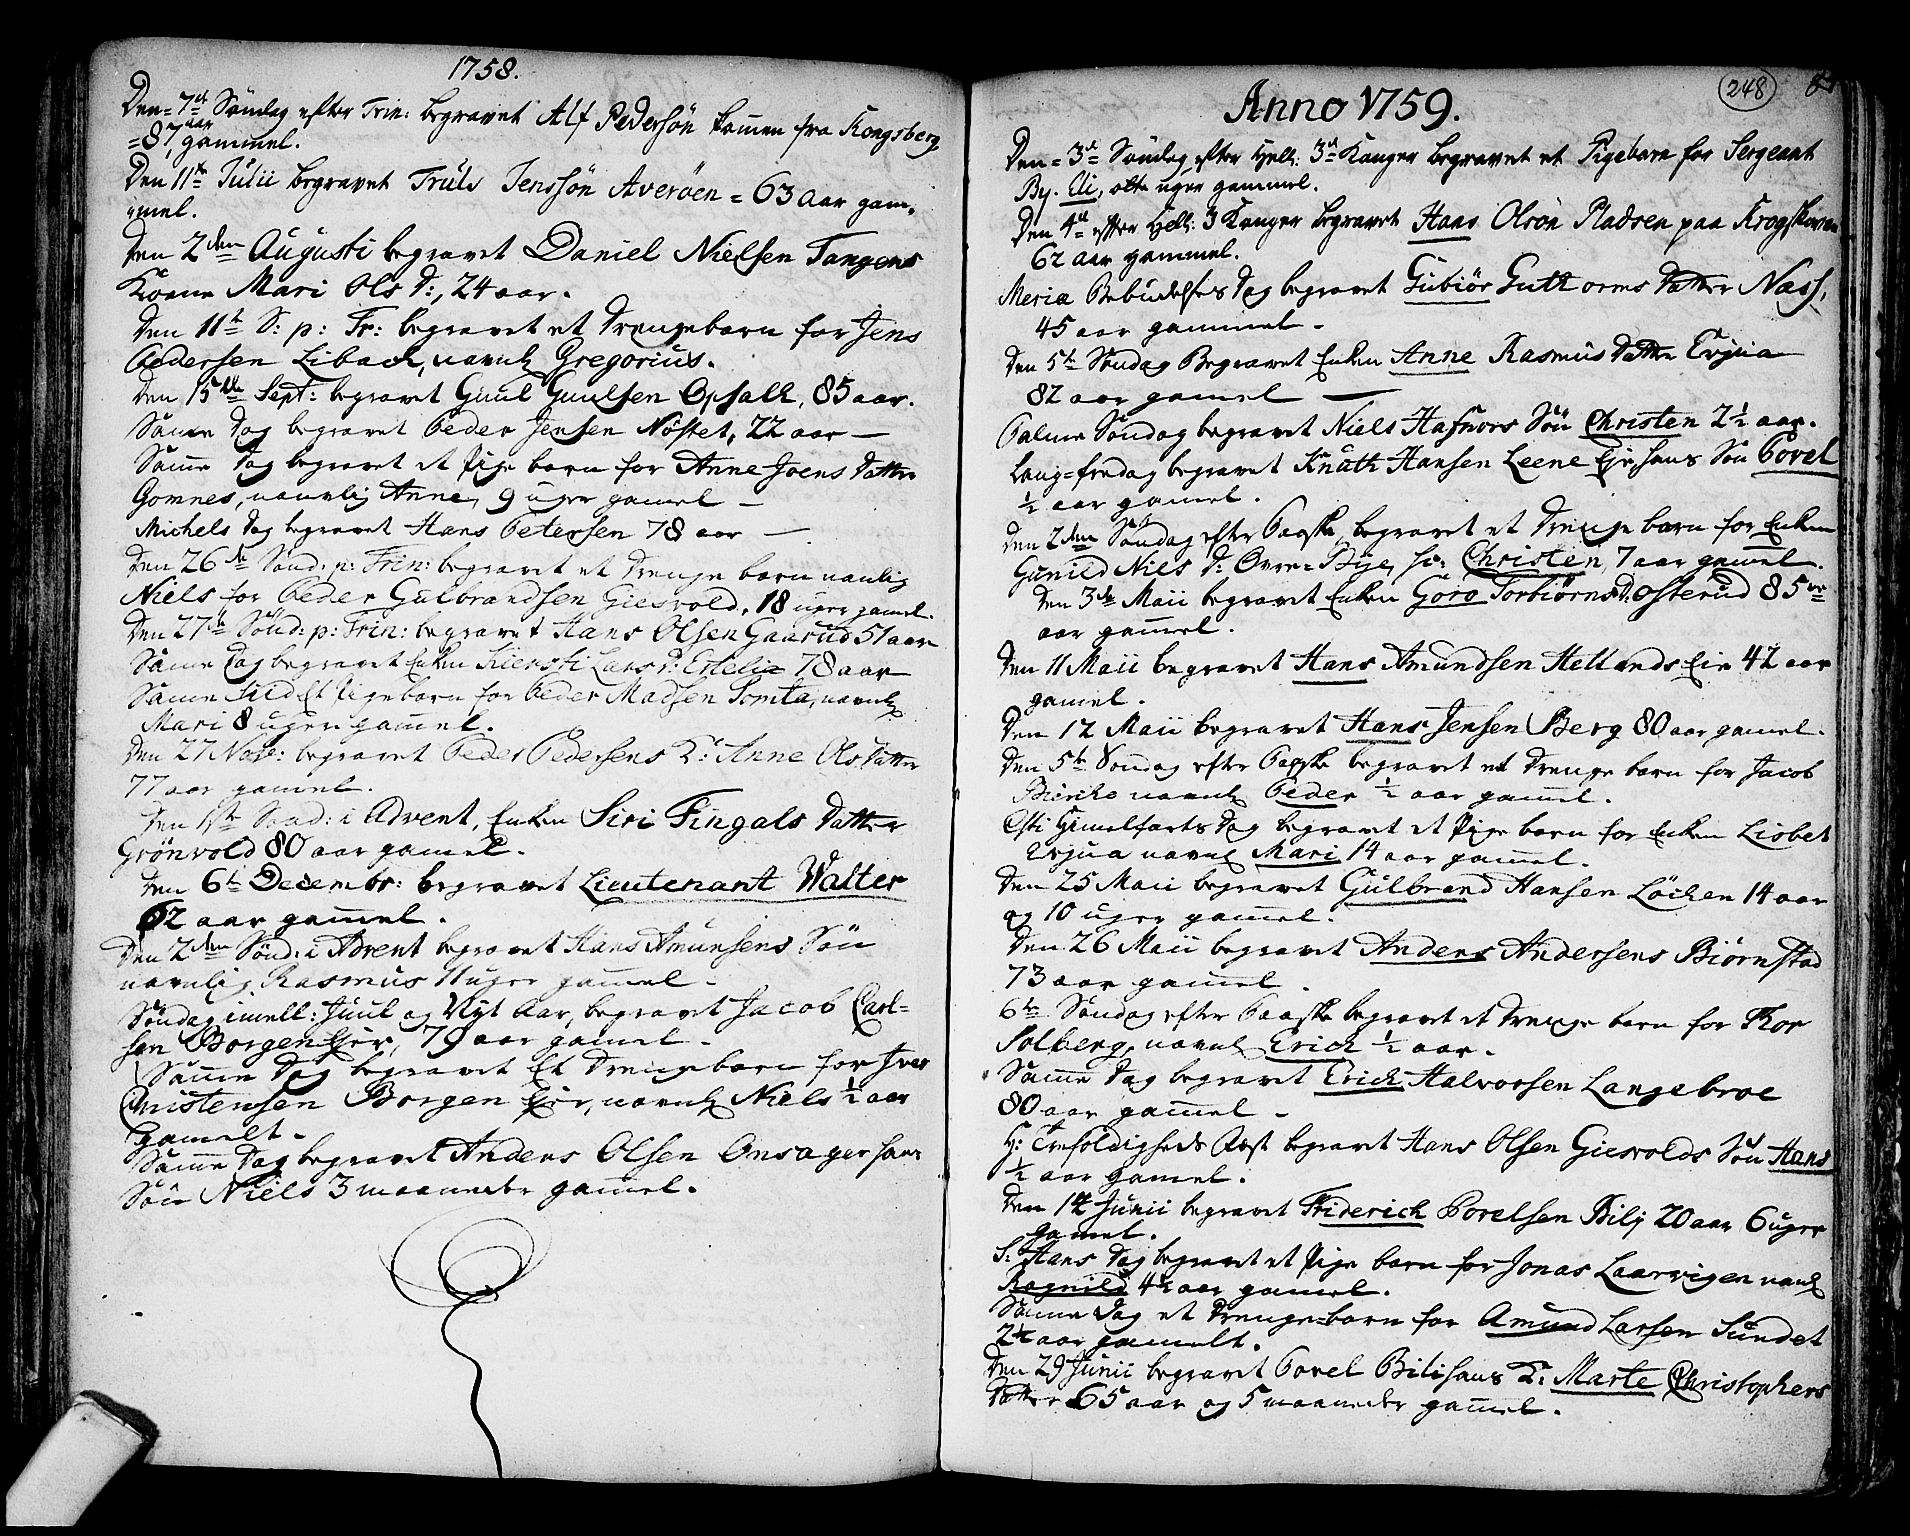 1758.
Den 7de Söndag efter Trin: begravet Alf Pedersön kommen fra Kongsberg
=87 aar gammel.
Den 11te Julii begravet Truls Jenssön Averöen = 63 aar gam-
mel.
Den 2den Augusti begravet Daniel Nielsen Tangens
Kone Mari Ols D:, 24 aar.
Den 11te S: p: Tr: begravet et Drengebarn for Jens
Pedersen Libach, navnl Gregorius.
Den 15de Sept: begravet Guul Guulsen Opsall, 85 aar.
Same Dag begravet Peder Jensen Nöstet, 22 aar —
Same Dag begravet et Pige barn for Anne Joens Datter
Gomnes, navnlig Anne, 9 uger gamel —
Michels Dag begravet Hans Petersen 78 aar —.
Den 26de Sönd: p: Trin: begravet et Drenge barn navnlig
Niels for Peder Gulbrandsen Giesvold, 18 uger gamel.
Den 27de Sönd: p: Trin: begravet Hans Olsen Gaarud 51 aar
Same Dag begravet Enken Kiersti Lars D: 78 aar
Same Tild Et Pigebarn for Peder Madsen Tomta, navnl
Mari 8 uger gamel.
Den 27 Nove: begravet Peder Pedersens K: Anne Ols Datter
77 aar gamel.
Den 1ste Sönd: i Advent, Enken Siri Fingals Datter
Grönvold 80 aar gamel.
Den 6te Decembr: begravet Lieutenant Walter
62 aar gamel.
Den 2den Sönd: i Advent begravet Hans Amunsens Sön
navnlig Rasmus 11 uger gamel -
Söndag imell: Juul og Nyt Aar, begravet Jacob Carl-
sen Borgen Ejer, 79 aar gamel -
Same Dag begravet Et Drengebarn for Iver
Christensen Borgen Ejer, navnl Niels ½ aar
gamelt -
Same Dag begravet Anders Olsen Onsager hans
Sön Niels 3 maaneder gamel.
248
Anno 1759.
Den = 3de Söndag efter Hell: 3de Konger begravet et Pigebarn for Sergeant
By. Eli, otte uger gammel.
Den 4de efter Hell: 3 Konger begravet Hans Olsön Pladsen paa Krogskoven
62 aar gammel.
Mariæ Bebudelses Dag begravet Gubiör Gutt orms Datter Næss,
45 aar gammel -
Den 5te Söndag Begravet Enken Anne Rasmus Datter Evjua
82 aar gamel —
Palme Söndag begravet Niels Hafnors Sön Christen 2½ aar.
Lang-fredag begravet Knuth Hansen Leene Eje hans Sön Povel
½ aar gamel.
Den 2den Söndag efter Paaske begravet et Drenge barn for Enken
Gunild Niels D: Ovre-Bye, h: Christen, 7 aar gamel.
Den 3de Maii begravet Enken Goro Torbiörns D: Osterud 85
aar gamel.
Den 11 Maii begravet Hans Amundsen Hellands Eie 42 aar
gamel.
Den 12 Maii begravet Hans Jensen Berg 80 aar gamel.
Den 5te Söndag efter Paaske begravet et Drenge barn for Jacob
navnl Peder ½ aar gamel.
Cristi Himelfarts Dag begravet et Pige barn for Enken Lisbet
Evjua navnl Mari 14 aar gamel.
Den 25 Maii begravet Gulbrand Hansen Löcken 14 aar
og 10 uger gamel.
Den 26 Maii begravet Anders Andersens Biörnstad
73 aar gamel.
6te Söndag efter Paaske begravet et Drenge barn for Thor
Solberg, navnl Erich ½ aar.
Same Dag begravet Erich Halvorsen Langebroe
80 aar gamel -
H: Trefoldigheds Fæst begravet Hans Olsen Giesvolds Sön Hans
½ aar gamel.
Den 14 Junii begravet Friderich Povelsen Bilj 20 aar 6 uger
gamel.
S: Hans Dag begravet et Pige barn for Jonas Laarvigen navnl
Ragnild 4½ aar gamel.
Same Dag et Drenge-barn for Amund Larsen Sundet
2½ aar gamelt.
Den 29 Junii begravet Povel Bili hans K: Marte Christophers
Datter 65 aar og 5 maaneder gamel.